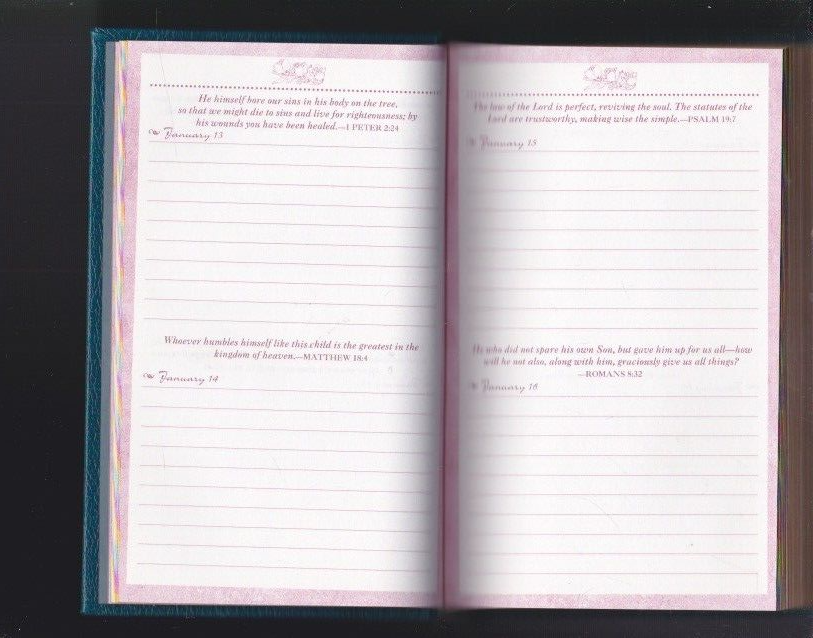 He himself bore our sins in his body on the tree,
so that we might die to sins and live for righteousness; by
his wounds you have been healed.—I PETER 2:24
January 13
Whoever humbles himself like this child is the greatest in the
kingdom of heaven.—MATTHEW 18:4
January 14
The law of the Lord is perfect, reviving the soul. The statutes of the
Lord are trustworthy, making wise the simple.—PSALM 19:7
January 15
He who did not spare his own Son, but gave him up for us all—how
will he not also, along with him, graciously give us all things?
—ROMANS 8:32
January 16